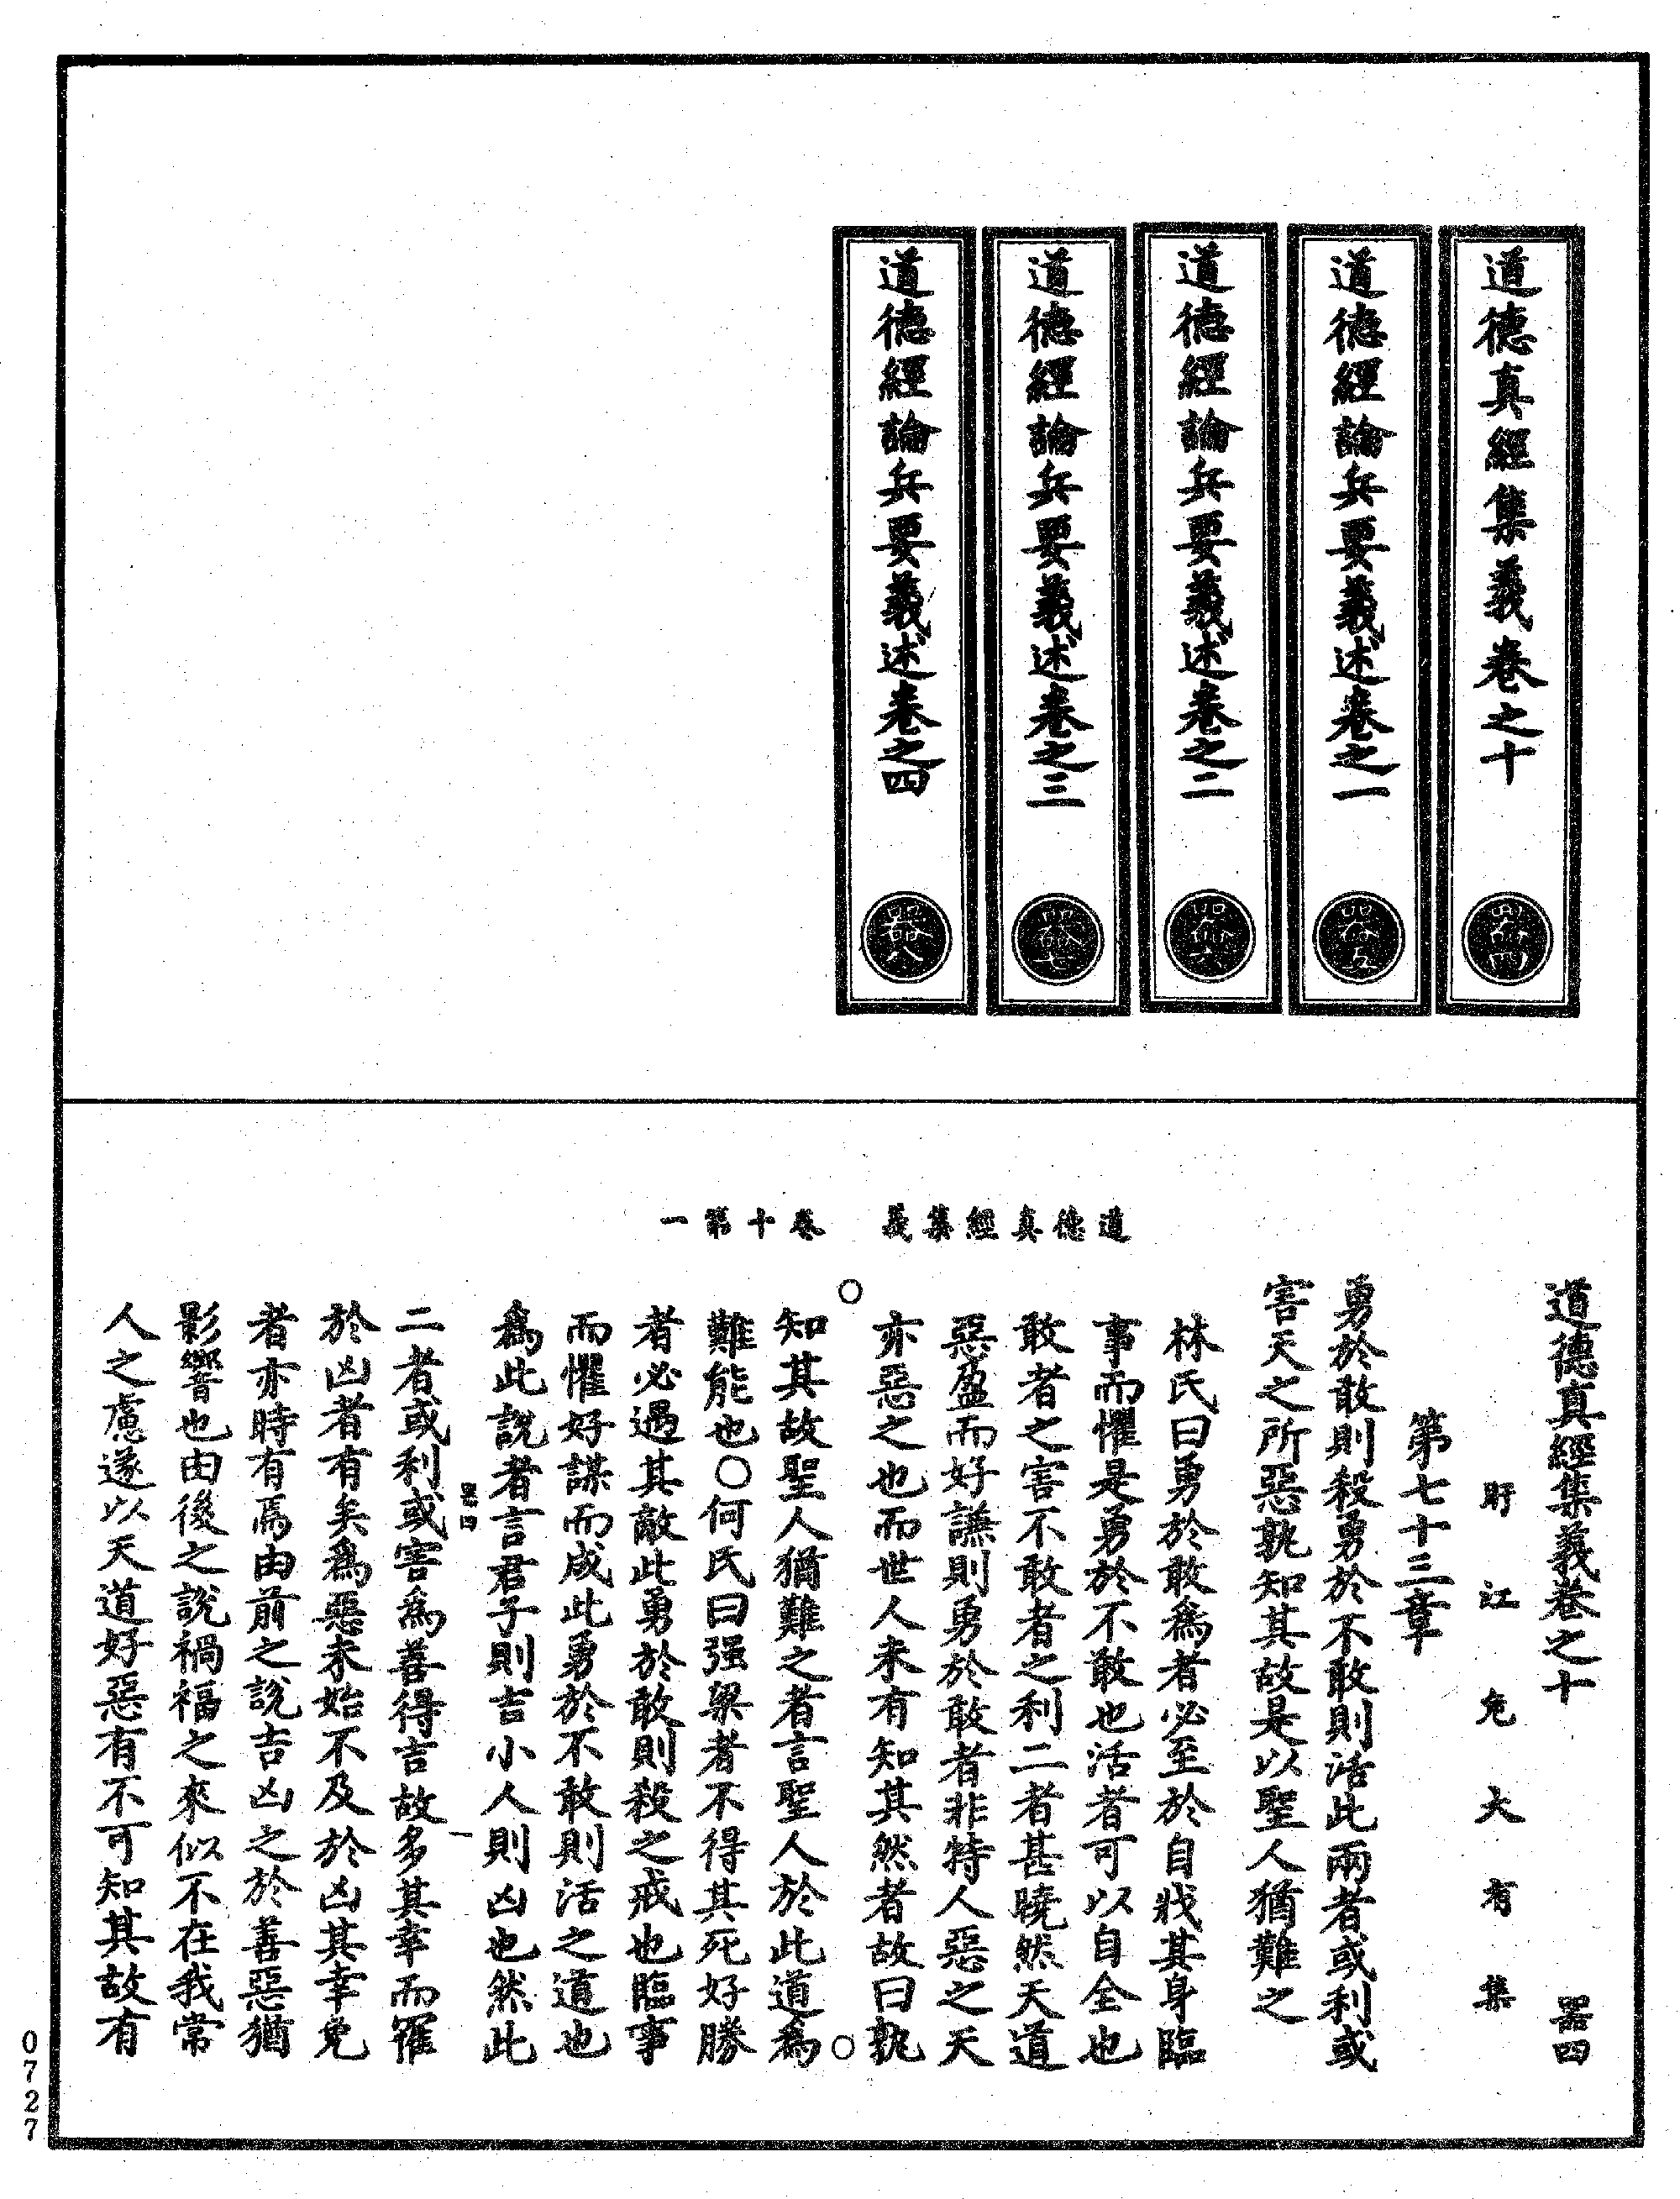 道德真經集義卷之十
器四
道德經論兵要義述卷之一
器五
道德經論兵要義述卷之二
器六
道德經論兵要義述卷之三
器七
道德經論兵要義述卷之四
器八
道德真經集義　卷十第一
道德真經集義卷之十　器四
盱江危大有集
第七十三章
勇於敢則殺勇於不敢則活此兩者或利或
害天之所惡孰知其故是以聖人猶難之
林氏曰勇於敢爲者必至於自戕其身臨
事而懼是勇於不敢也活者可以自全也
敢者之害不敢者之利二者甚曉然天道
惡盈而好謙則勇於敢者非特人惡之天
亦惡之也而世人未有知其然者故曰孰
知其故聖人猶難之者言聖人於此道爲
難能也○何氏曰强梁者不得其死好勝
者必遇其敵此勇於敢則殺之戒也臨事
而懼好謀而成此勇於不敢則活之道也
爲此說者言君子則吉小人則凶也然此
器四　一
二者或利或害爲善得吉故多其幸而罹
於凶者有矣爲惡未始不及於凶其幸免
者亦時有焉由前之說吉凶之於善惡猶
影響也由後之說禍福之來似不在我常
人之慮遂以天道好惡有不可知其故有
0727